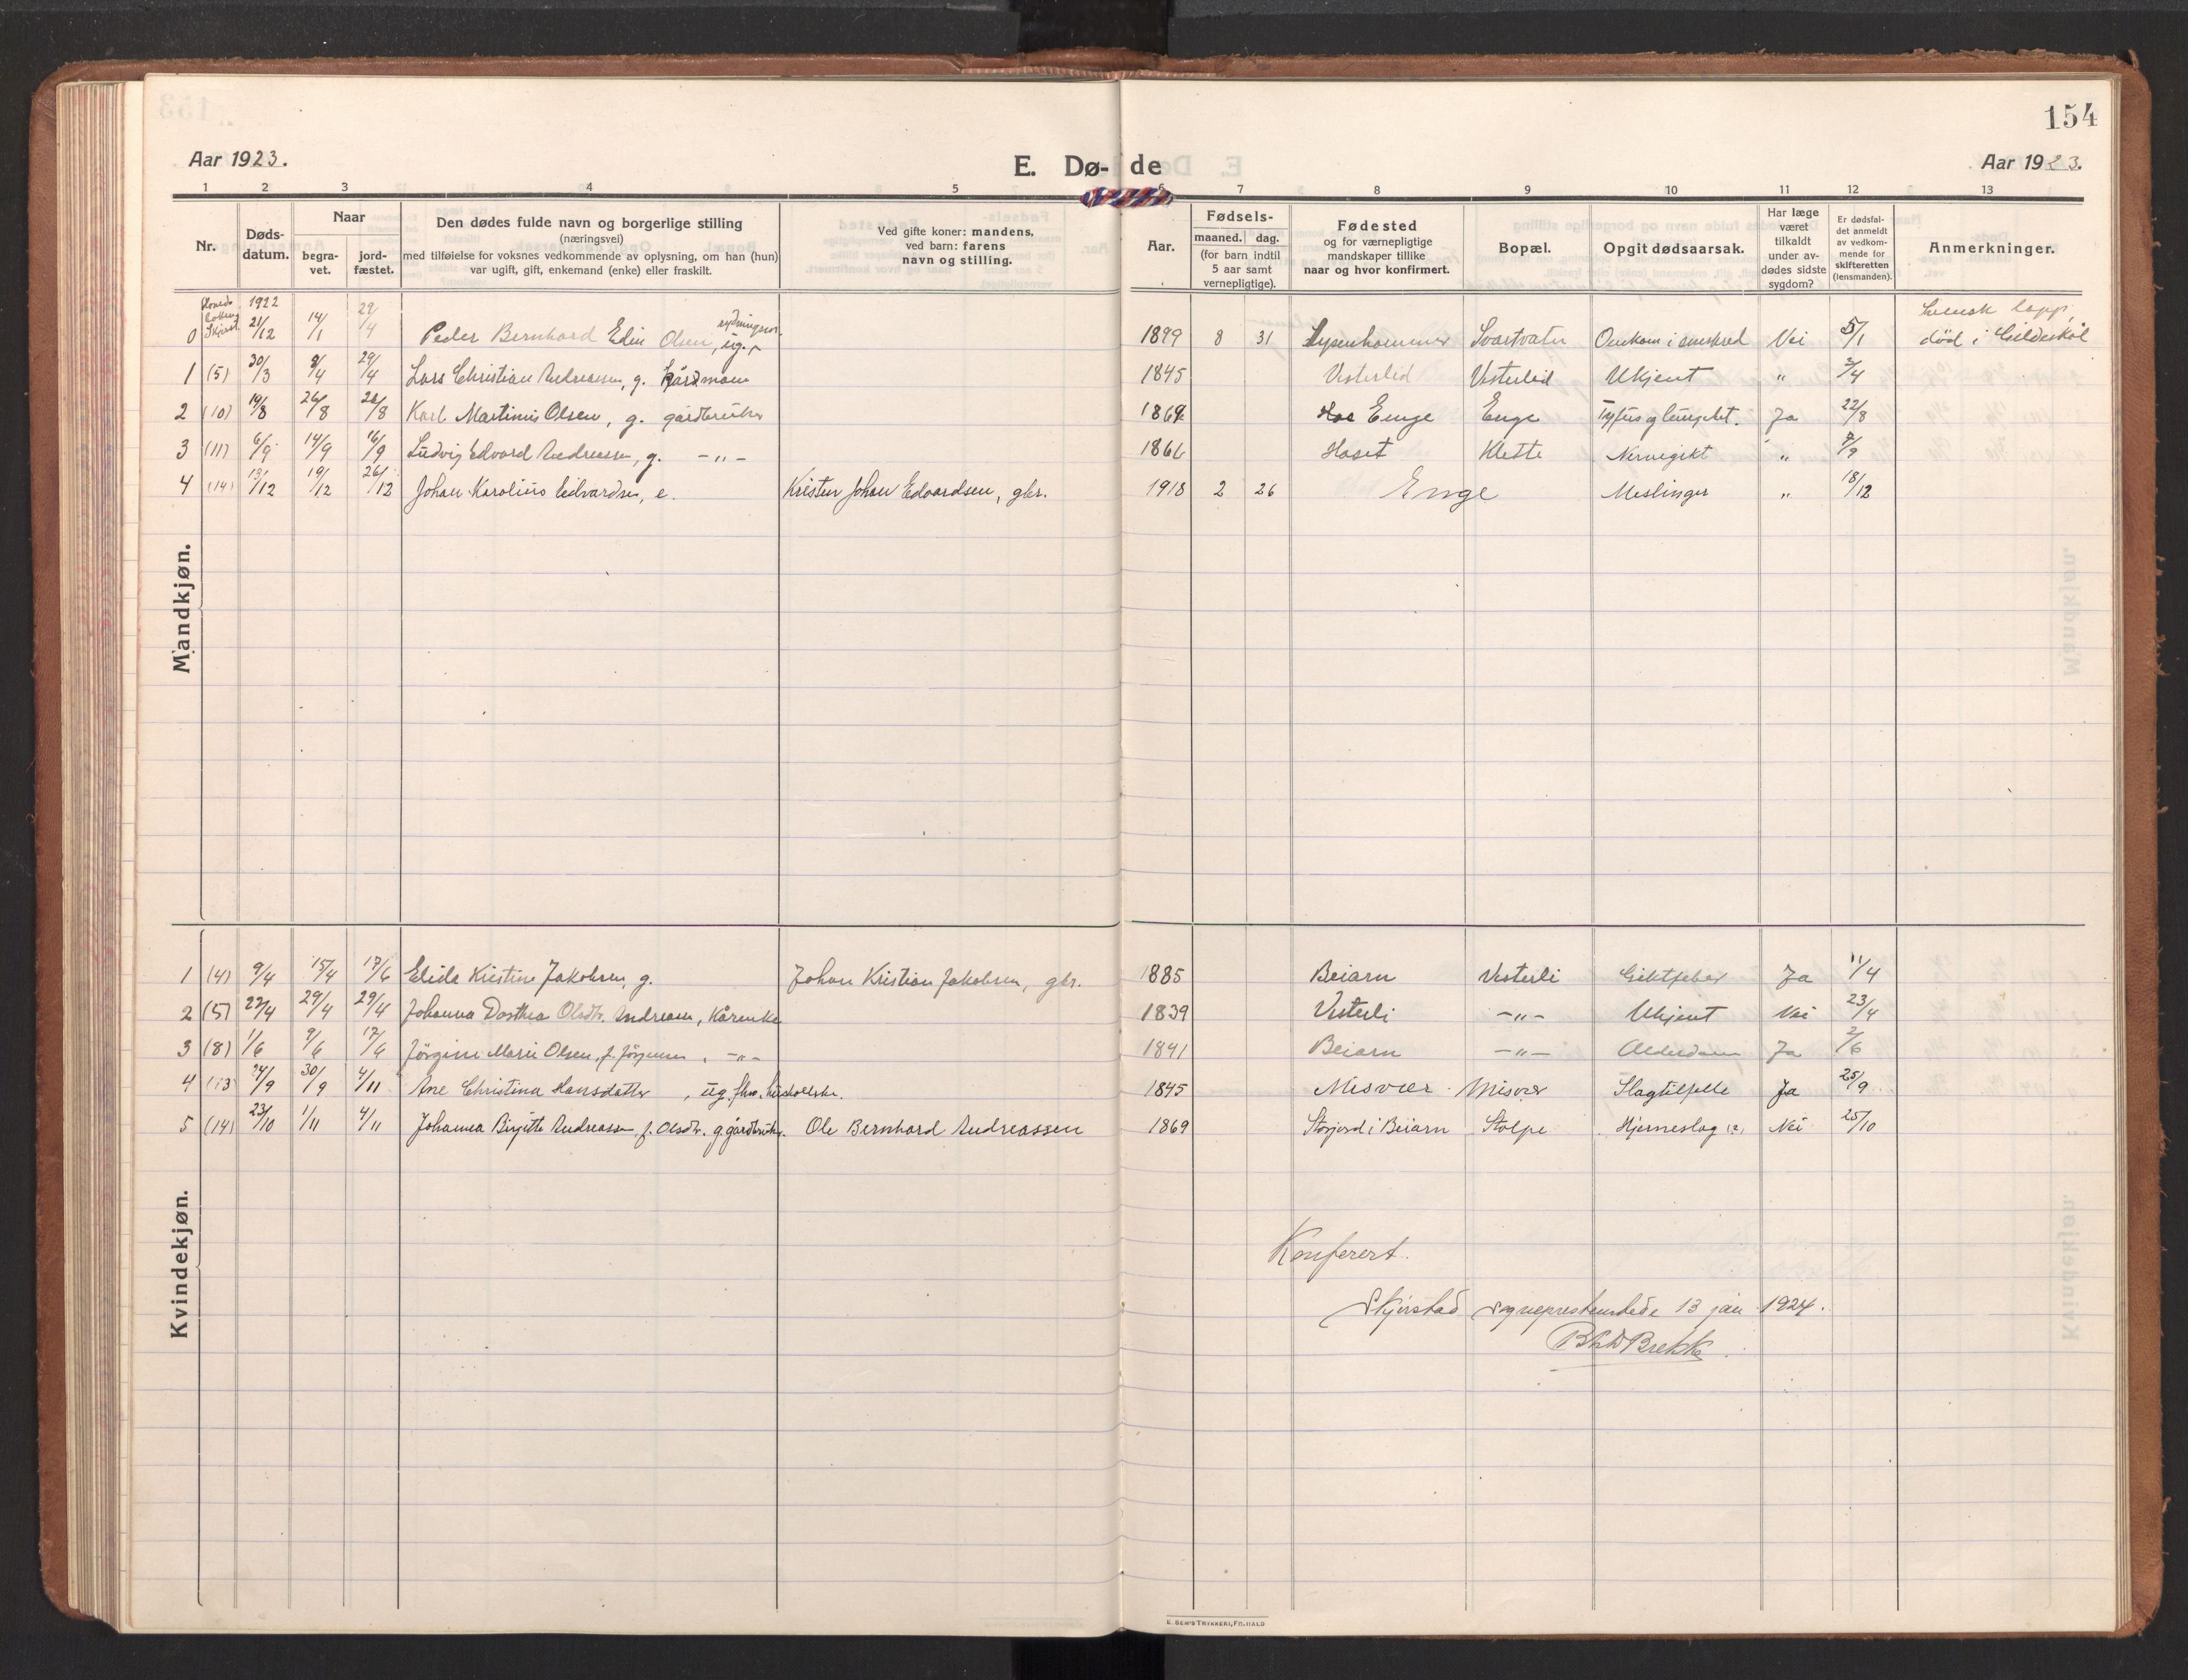 154
Aar 1923.
E. Dø- de
Aar 1923.
1 2 3 4 5 6 7 8 9 10 11 12 13
Nr.
Døds-
datum.
Naar
begra-
vet.
jord-
fæstet.
Den dødes fulde navn og borgerlige stilling
(næringsvei)
med tilføielse for voksnes vedkommende av oplysning, om han (hun)
var ugift, gift, enkemand (enke) eller fraskilt.
Ved gifte koner: mandens,
ved barn: farens
navn og stilling.
Aar.
Fødsels-
maaned. dag.
(for barn indtil
5 aar samt
vernepligtige).
Fødested
og for værnepligtige
mandskaper tillike
naar og hvor konfirmert.
Bopæl.
Opgit dødsaarsak.
Har læge
været
tilkaldt
under av-
dødes sidste
sygdom?
Er dødsfal-
det anmeldt
av vedkom-
mende for
skifteretten
(lensmanden).
Anmerkninger.
Mandkjøn.
1922
0 21/12 14/1 29/4 Peder Bernhard Edin Olsen, ug. 1899 8 31 Svartvatn Omkom i sneskred Nei 5/1 Svensk lapp,
død i Gildeskål
1 (5) 30/3 8/4 29/4 Lars Christian Andreassen, g. kårmann 1845 Vesterlid Vesterlid Ukjent " 3/4
2 (10) 19/8 26/8 26/8 Karl Martinus Olsen, g. gårdbruker 1864 Enge Enge Tyfus og lungebet. Ja 22/8
3 (11) 6/9 14/9 16/9 Ludvig Edvard Andreassen, g. -"- 1866 Haset Klette Nervegikt " 8/9
4 (14) 13/12 19/12 26/12 Johan Karolius Edvardsen, e. Kristen Johan Edvardsen, gbr. 1918 2 26 Enge Meslinger " 18/12
Kvindekjøn.
1 (4) 9/4 15/4 17/6 Elida Kristine Jakobsen, g. Johan Kristian Jakobsen, gbr. 1885 Beiarn Vesterli Giktfeber Ja 11/4
2 (5) 22/4 29/4 29/4 Johanna Dorthea Olsdtr. Andreassen, Kårenke 1839 Vesterli -"- Ukjent Nei 23/4
3 (8) 1/6 9/6 17/6 Jörgine Marie Olsen, f. Jörgensen, -"- 1841 Beiarn -"- Alderdom Ja 2/6
4 (13 24/9 30/9 4/11 Ane Christina Hansdatter, ug. fhv. husholdske. 1845 Misvær Misvær Slagtilfelle Ja 25/9
5 (14) 23/10 1/11 4/11 Johanna Birgitte Andreassen f. Olsdtr. g. gårdbruker. Ole Bernhard Andreassen 1869 Storjord i Beiarn Stolpe Hjerneslag (?) Nei 25/10
Konferert.
Skjerstad sogneprestembede 13 jan 1924.
Brekke
E. SEM'S TRYKKERI, FR.HALD